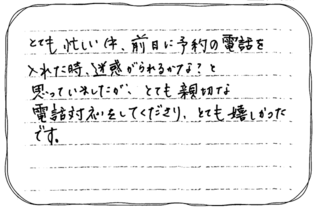 とても忙しい中、前日に予約の電話を
入れた時、迷惑がられるかな？と
思っていましたが、とても親切な
電話対応をしてくださり、とても嬉しかった
です。